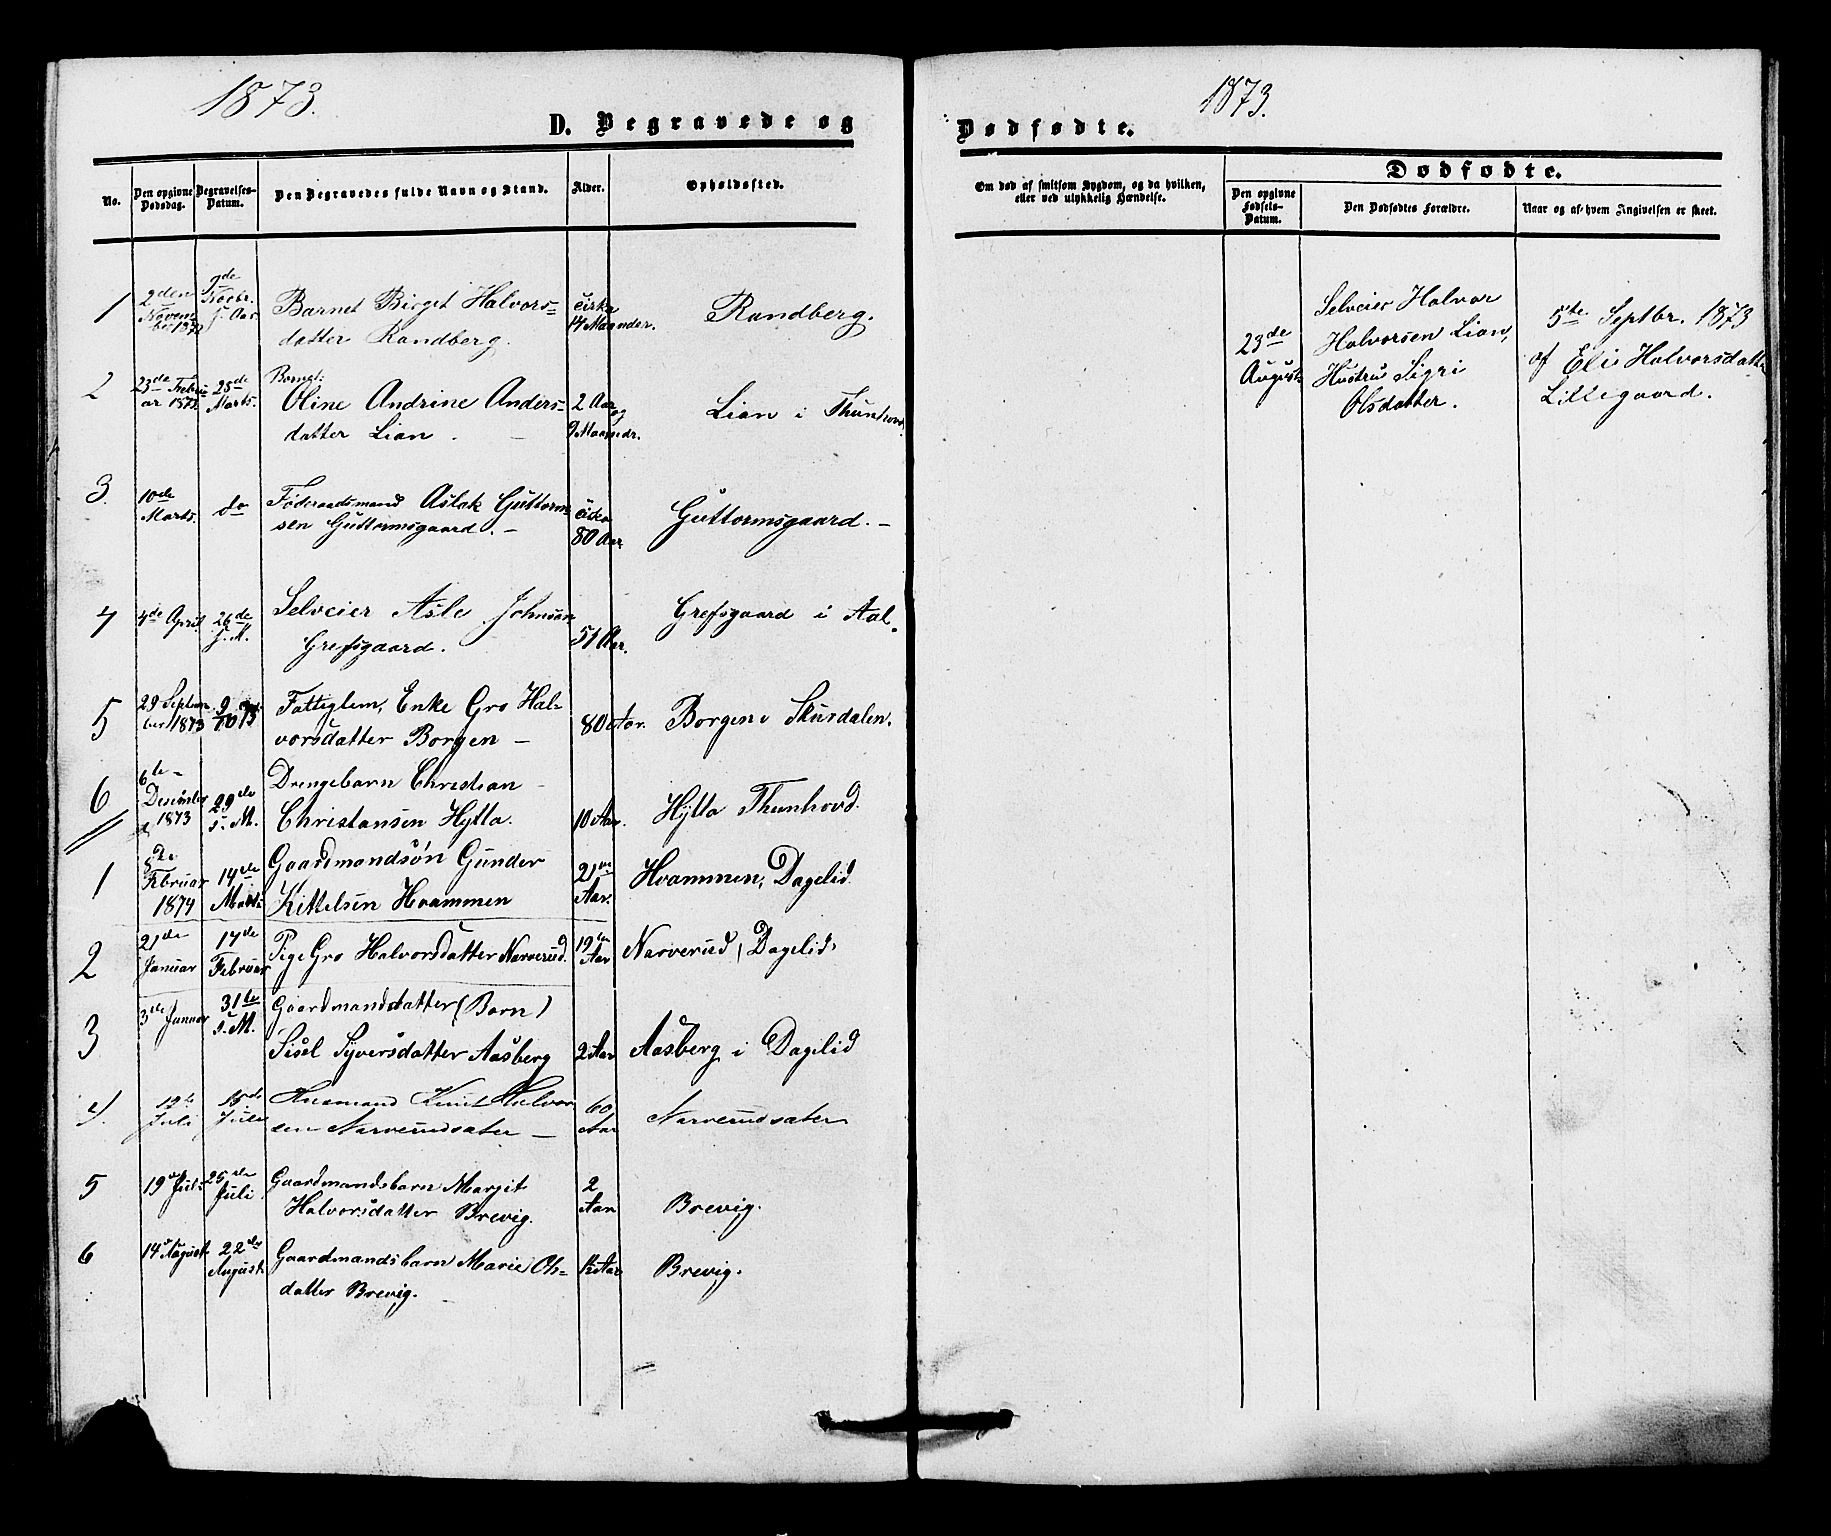 1873.
D. Begravede og
No.
Den opgivne Dødsdag.
Begravelses-Datum.
Den Begravedes fulde Navn og Stand.
Alder.
Opholdssted.
1
2den Novem-
ber 1872
9de Febr.
Barnet Birgit Halvors-
datter Randberg.
cirka
14 Maaneder.
Randberg.
2
23de Febru-
ar 1873
28de
Marts.
Barnet
Oline Andrine Anders-
datter Lian. –
2 Aar og
9 Maaneder.
Lian i Thunhovd
3.
10de
Marts.
do
Føderaadsmand Aslak Guttorm-
sen Guttormsgaard. –
cirka
80 Aar
Guttormsgaard. –
4
4de April
26de
s. M.
Selveier Asle Johnsen
Grefsgaard.
51 Aar.
Grefsgaard i Aal.
5
29 Septem-
ber 1873
9/10 73
Fattiglem, Enke Gro Hal-
vorsdatter Borgen –
80 Aar.
Borgen i Skurdalen.
6
6te
Desember
1873
29de
s. M.
Drengebarn Christian
Christansen Hytta.
10 Aar.
Hytta Thunhovd.
1
5te
Februar
1874
14de
Marts
Gaardmandsøn Gunder
Kittelsen Hvammen
21
Aar.
Hvammen, Dagelid.
2
21de
Januar
14de
Februar
Pige Gro Halvorsdatter Narverud.
19
Aar
Narverud, Dagelid
3
3de Januar
31te
s. M.
Gaardmandsdatter (Barn)
Sisel Syversdatter Aasberg
2 Aar
Aasberg i Dagelid
4.
12te
Juli
15de
Juli
Husmand Knut Halvor
sen Narverudsater –
60
Aar
Narverudsater
5
19de Juli
25de
Juli
Gaardmandsbarn Margit
Halvorsdatter Brevig.
2
Aar
Brevig.
6
14 August
22de
August
Gaardmandsbarn Marie Ols-
datter Brevig. –
Aar
Brevig.
1873.
Dødfødte.
Om død af smitsom Sygdom, og da hvilken,
eller ved ulykkelig Hændelse.
Dødfødte.
Den opgivne
Fødsels-
Datum.
Den Dødfødtes Forældre.
Naar og af hvem Angivelsen er skeet.
23de
August
Selveier Halvor
Halvorsen Lian,
Hustru Sigri
Olsdatter.
5te Septbr. 1873
af Eli Halvorsdatter
Lillegaard.